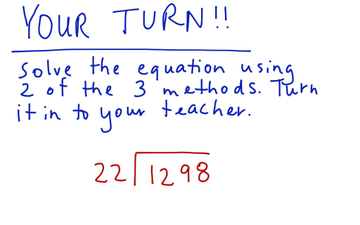 YOUR TURN!!
Solve the equation using
2 of the 3 methods. Turn
it in to your teacher.
22 1298